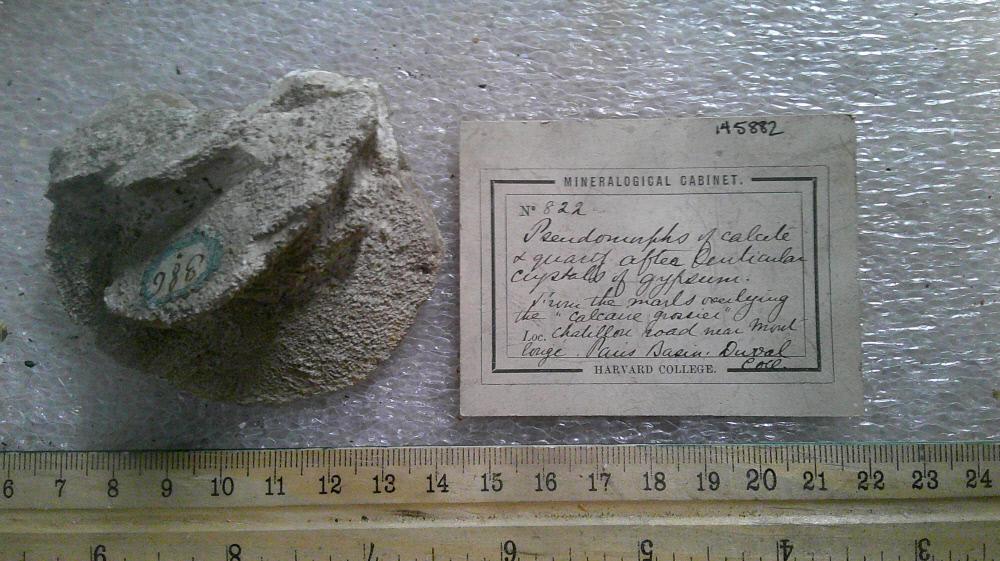 145882
MINERALOGICAL CABINET.
Nº 822
Pseudomorphs of calcite
& quartz after lenticular
crystals of gypsum.
From the marls overlying
the "calcaire grossier"
Loc. Chatillon road near Mont
rouge. Paris Basin. Duval
Coll.
HARVARD COLLEGE.
6 7 8 9 10 11 12 13 14 15 16 17 18 19 20 21 22 23 24
9 8 7 6 5 4 3